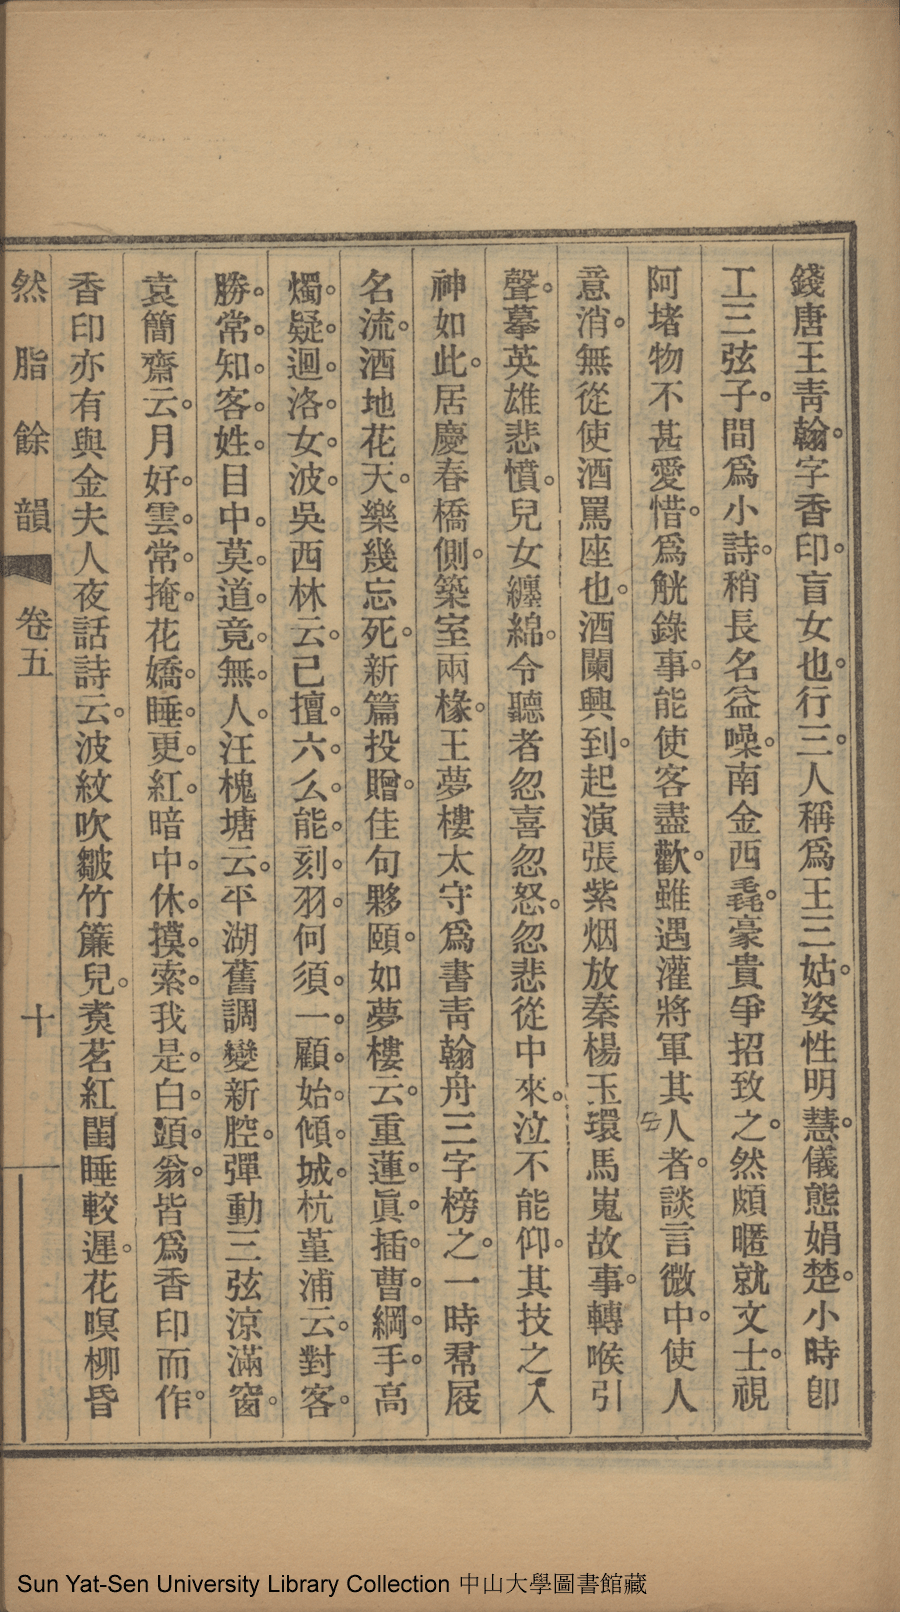 錢唐王靑翰。字香印。盲女也。行三。人稱爲王三姑。姿性明慧。儀態娟楚。小時卽
工三弦子。間爲小詩。稍長名益噪。南金西毳。豪貴爭招致之。然頗暱就文士。視
阿堵物不甚愛惜。爲觥錄事。能使客盡歡。雖遇灌將軍其人者。談言微中。使人
意消。無從使酒罵座也。酒闌興到。起演張紫烟放秦楊玉環馬嵬故事。轉喉引
聲。摹英雄悲憤。兒女纏綿。令聽者忽喜忽怒。忽悲從中來。泣不能仰。其技之入
神如此。居慶春橋側。築室兩椽。王夢樓太守爲書靑翰舟三字榜之。一時羣屐
名流。酒地花天。樂幾忘死。新篇投贈。佳句夥頤。如夢樓云。重蓮。眞。插。曹。綱。手。高
燭。疑。迴。洛。女。波。吳西林云。已擅。六。么。能。刻。羽。何須。一。顧。始。傾。城。杭堇浦云。對客。
勝。常。知。客。姓。目中。莫。道。竟。無。人。汪槐塘云。平湖舊調變新腔。彈動三弦涼滿窗。
袁簡齋云。月好。雲。常。掩。花嬌。睡。更。紅。暗中。休。摸。索。我是。白。頭。翁。皆爲香印而作。
香印亦有與金夫人夜話詩云。波紋吹皺竹簾兒。煑茗紅閨睡較遲。花暝柳昏
然脂餘韻 卷五 十
Sun Yat-Sen University Library Collection 中山大學圖書館藏